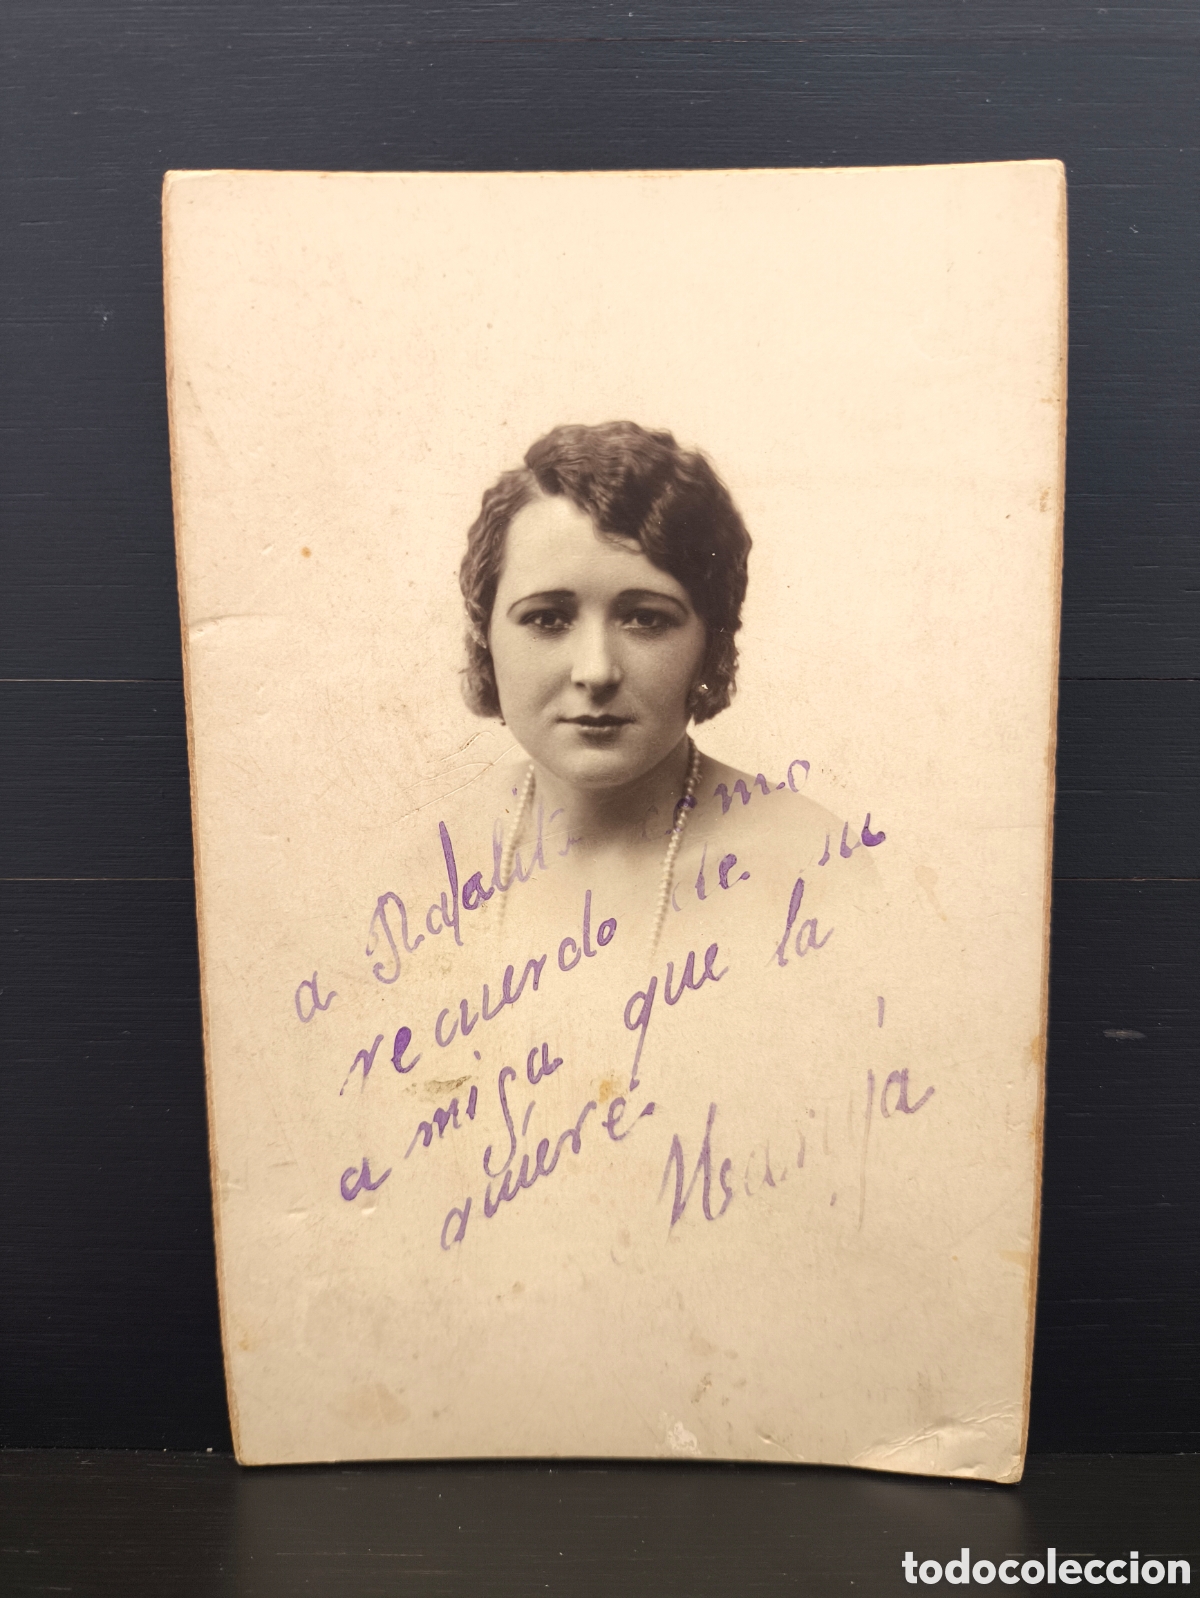 a Rafalita como
recuerdo de su
amiga que la
quiere.
Maruja
todocoleccion